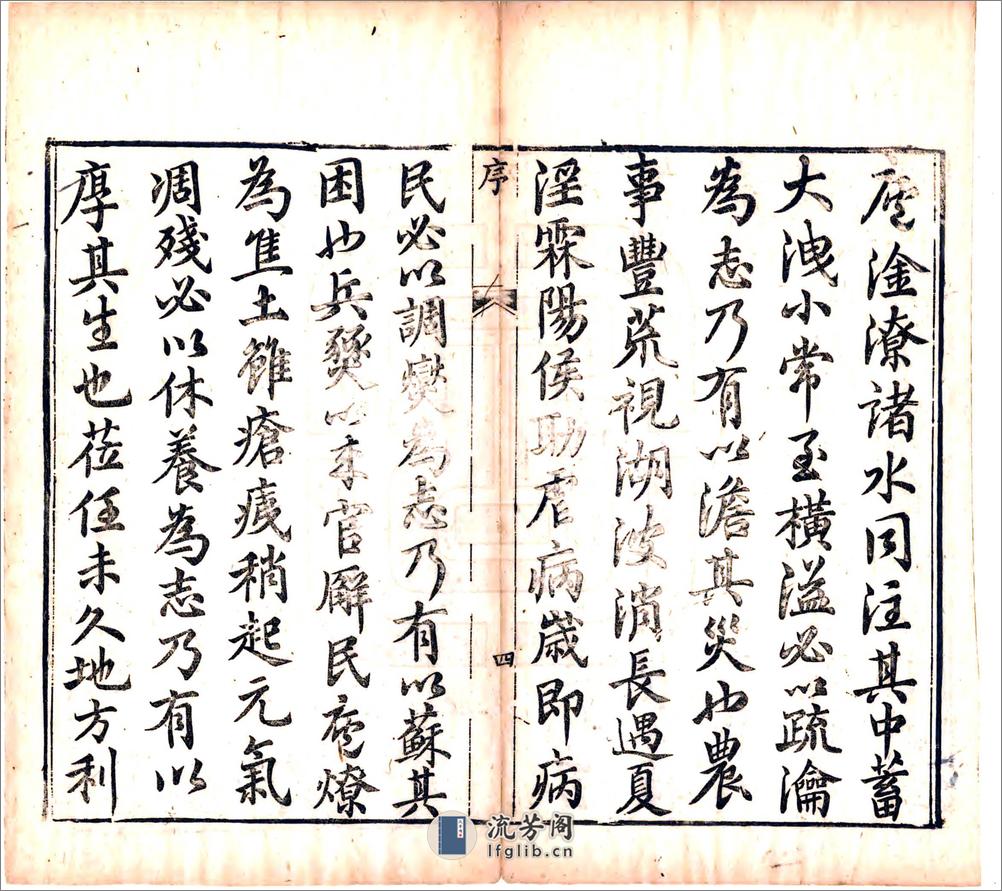 廬淦潦諸水同注其中蓄
大洩小常至橫溢必以疏瀹
為志乃有以澹其災也農
事豐荒視湖波消長遇夏
淫霖陽侯助虐病歲即病
序
四
民必以調燮為志乃有以蘇其
困也兵燹以來官廨民廬燎
為焦土雖瘡痍稍起元氣
凋殘必以休養為志乃有以
厚其生也莅任未久地方利
流芳阁
lfglib.cn